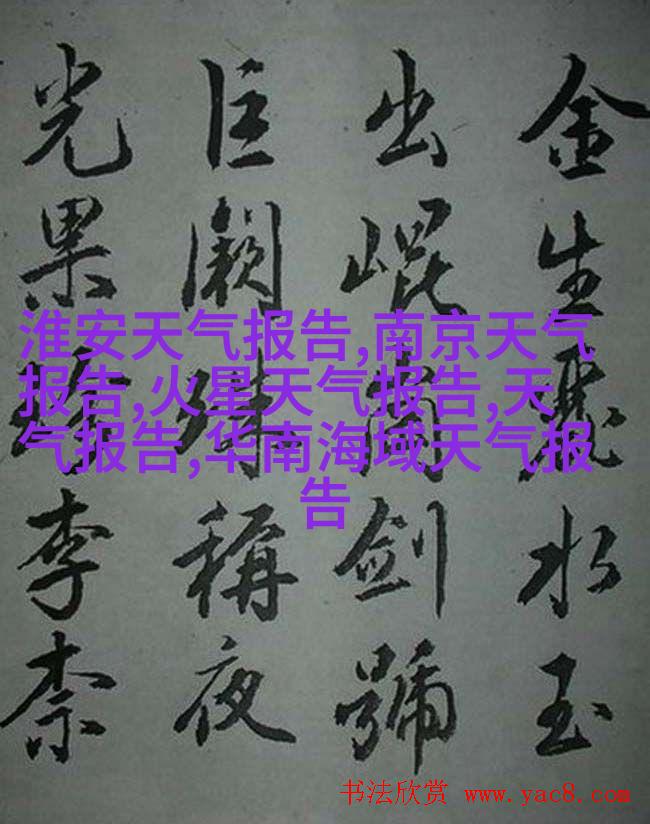 金生麗水玉
出崐岡劍號
巨闕珠稱夜
光果珍李柰
淮安天气报告,南京天气
报告,火星天气报告,天
气报告,华南海域天气报
告
书法欣赏 www.yac8.com